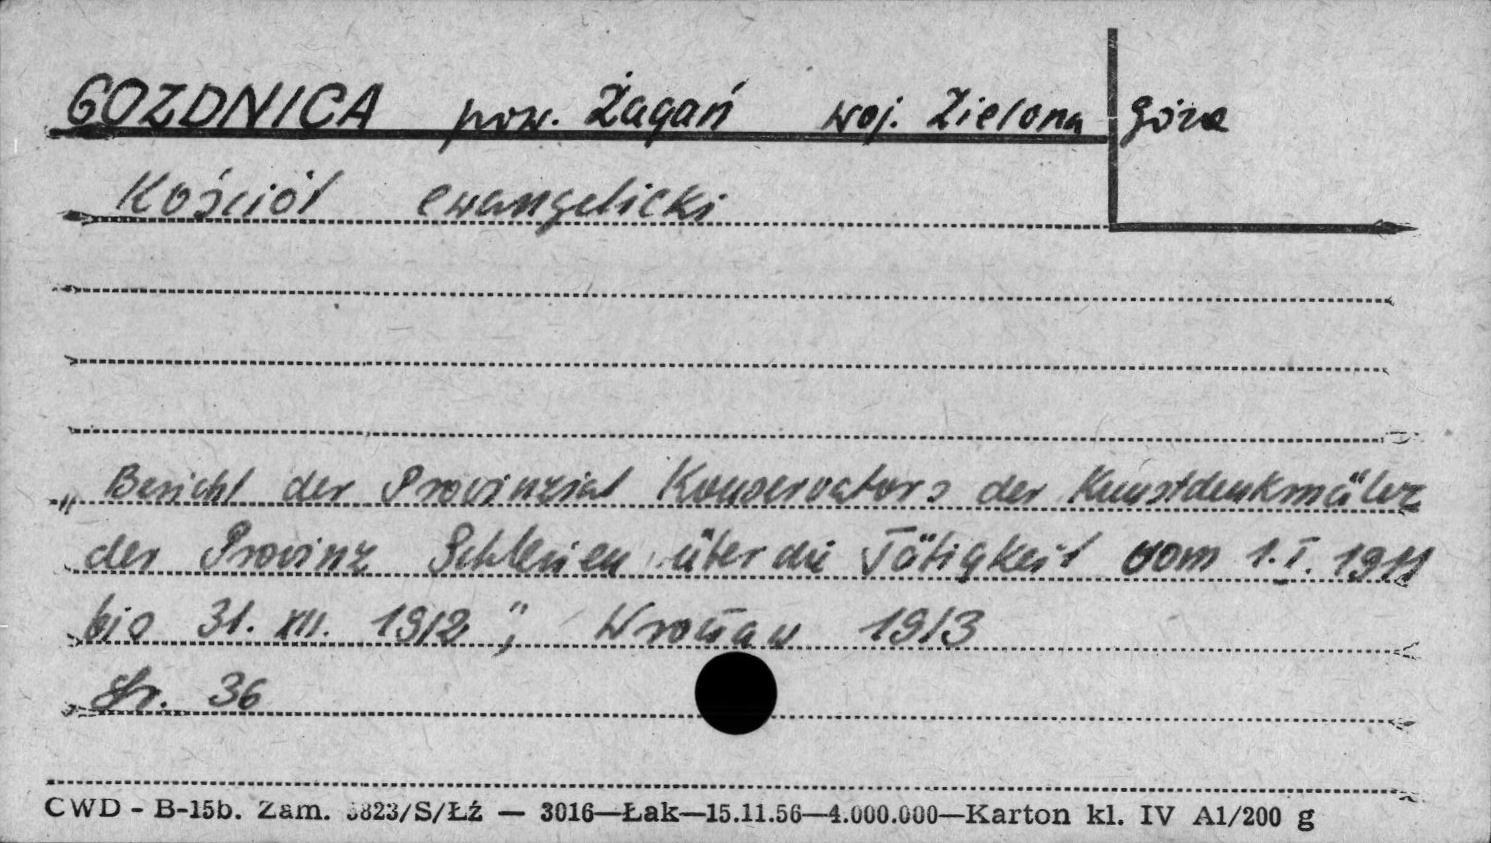 GOZDNICA pow. Żagań woj. Zielona Góra
Kościół ewangelicki
„Bericht der Provinzial Konservators der Kunstdenkmäler
der Provinz Schlesien über die Tätigkeit vom 1.I.1911
bis 31.XII.1912", Wrocław 1913
Str. 36
CWD - B-15b. Zam. 3823/S/Łź — 3016—Łak—15.11.56—4.000.000—Karton kl. IV A1/200 g